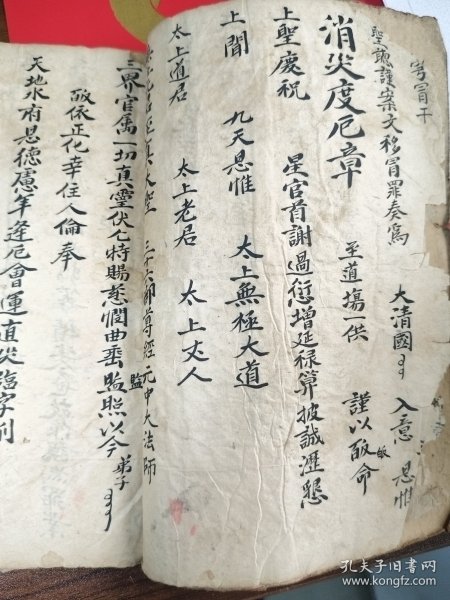 冒干
聖聰謹案文移冒罪奏為
大清國 入意 恩惟
至道場一供 謹以 啟命
消災度厄章
上聖慶祝 星官首謝過愆增延祿算披誠瀝懇
上聞 九天恩惟 太上無極大道
太上道君 太上老君 太上丈人
三十六部尊經元中大法師
三界官属一切真靈伏乞特賜慈憫曲垂監照以今弟子
監
啟依正化幸住人倫奉
天地水府恩德慮年逢厄會運直災臨字削
孔夫子旧书网
www.kongfz.com